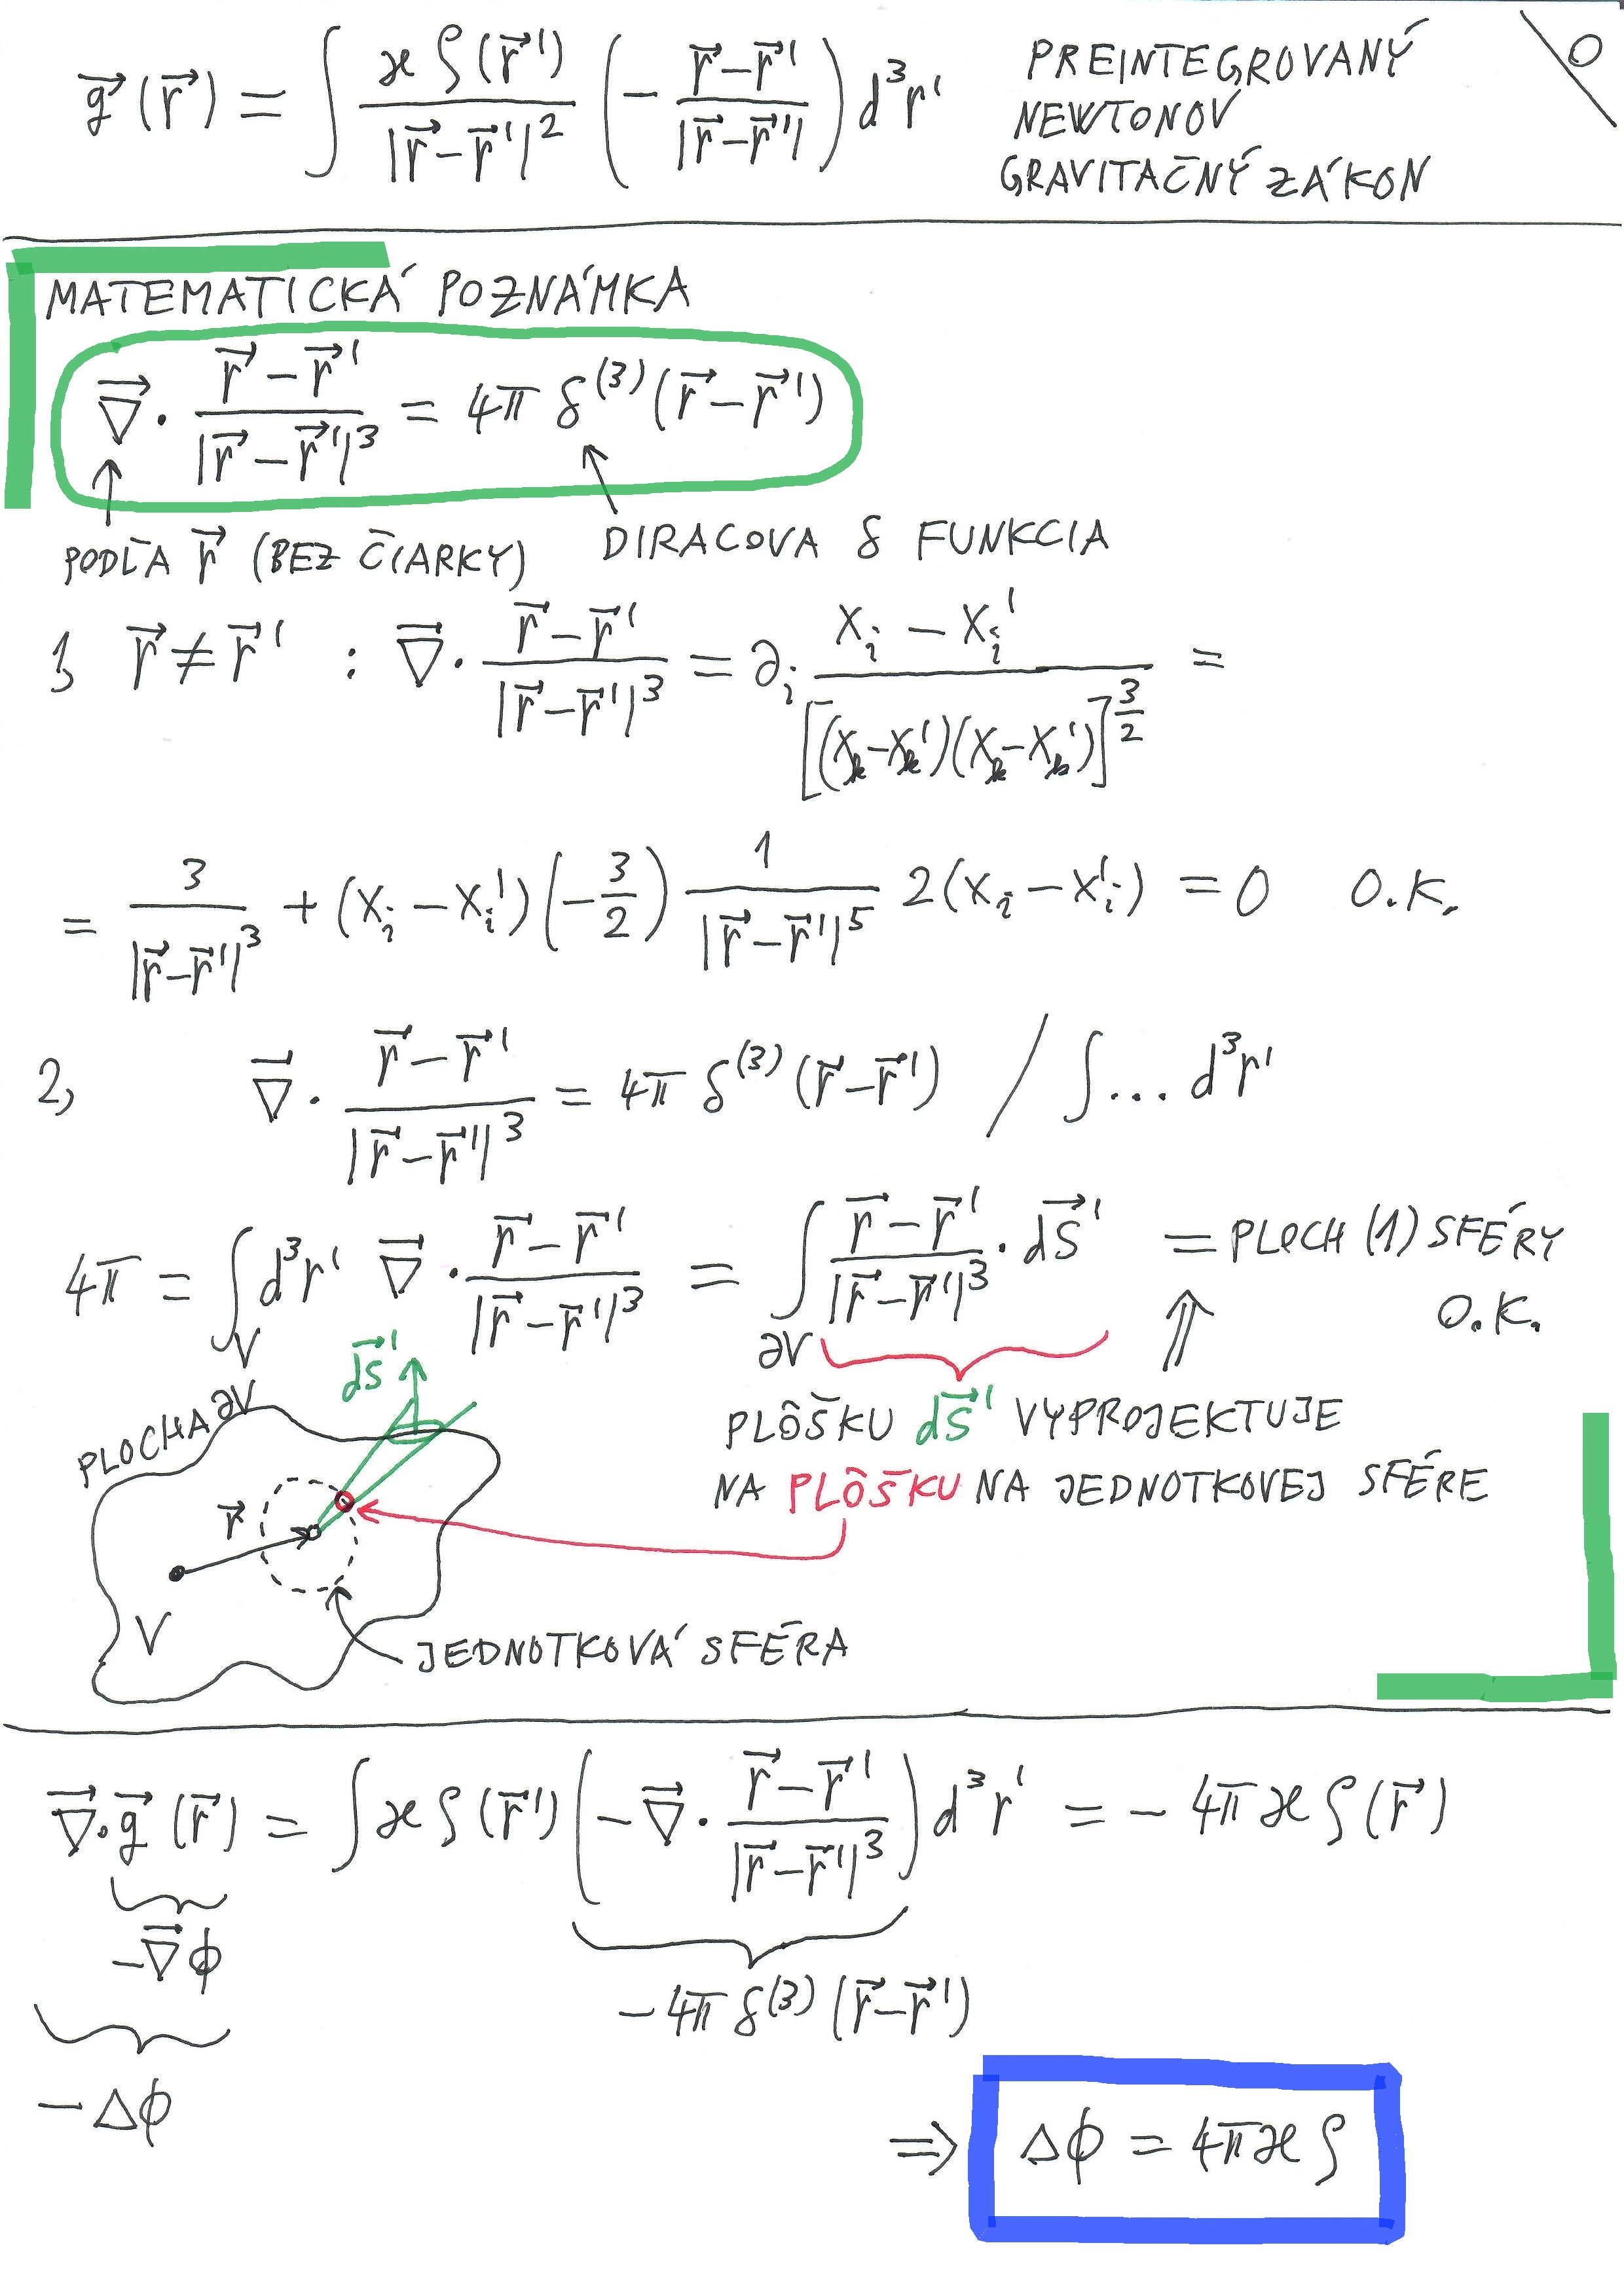 0
g⃗(r⃗) = ∫ ϰρ(r⃗')/|r⃗-r⃗'|² (- (r⃗-r⃗')/|r⃗-r⃗'|) d³r'
PREINTEGROVANÝ
NEWTONOV
GRAVITAČNÝ ZÁKON
MATEMATICKÁ POZNÁMKA
∇⃗· (r⃗-r⃗')/|r⃗-r⃗'|³ = 4π δ⁽³⁾(r⃗-r⃗')
PODĽA r⃗ (BEZ ČIARKY)
DIRACOVA δ FUNKCIA
1, r⃗ ≠ r⃗' : ∇⃗· (r⃗-r⃗')/|r⃗-r⃗'|³ = ∂ᵢ (xᵢ-xᵢ')/[(xₖ-xₖ')(xₖ-xₖ')]^(3/2) =
= 3/|r⃗-r⃗'|³ + (xᵢ-xᵢ')(-3/2) 1/|r⃗-r⃗'|⁵ 2(xᵢ-xᵢ') = 0 O.K.
2, ∇⃗· (r⃗-r⃗')/|r⃗-r⃗'|³ = 4π δ⁽³⁾(r⃗-r⃗') / ∫... d³r'
4π = ∫_V d³r' ∇⃗· (r⃗-r⃗')/|r⃗-r⃗'|³ = ∫_∂V (r⃗-r⃗')/|r⃗-r⃗'|³ · dS⃗' = PLOCH (1) SFÉRY
O.K.
PLÔŠKU dS⃗' VYPROJEKTUJE
NA PLÔŠKU NA JEDNOTKOVEJ SFÉRE
dS⃗'
PLOCHA ∂V
r⃗
V
JEDNOTKOVÁ SFÉRA
∇⃗·g⃗(r⃗) = ∫ ϰρ(r⃗') (-∇⃗· (r⃗-r⃗')/|r⃗-r⃗'|³) d³r' = - 4πϰρ(r⃗)
-∇⃗ϕ
-4π δ⁽³⁾(r⃗-r⃗')
-Δϕ
⇒ Δϕ = 4πϰρ